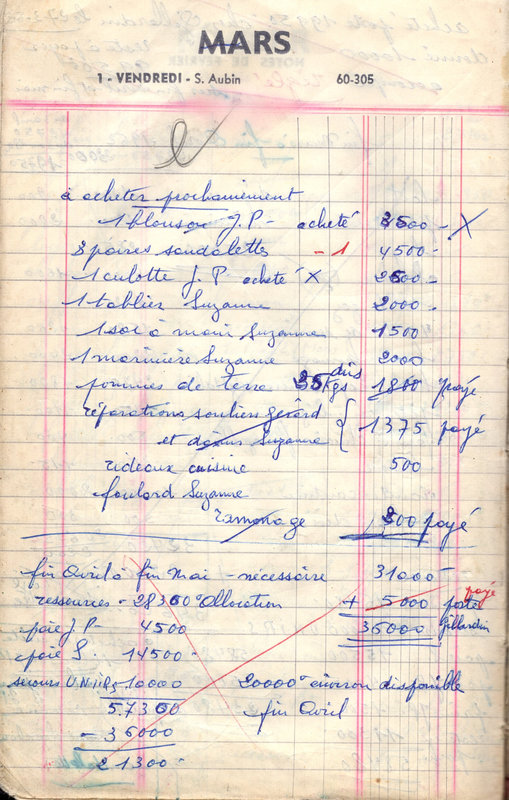 MARS
1 - VENDREDI - S. Aubin 60-305
à acheter prochainement
1 blouson J.P - acheté 3500 - X
3 paires sandalettes - 1 4500 -
1 culotte J.P acheté X 2500 -
1 tablier Suzanne 2000 -
1 sac à main Suzanne 1500
1 marinière Suzanne 2000
pommes de terre 35 Kgs dûs 1800 payé
réparations souliers gérard
et Suzanne { 1375 payé
rideaux cuisine 500
foulard Suzanne
ramonage 800 payé
fin Avril à fin Mai - nécessaire 31000 -
ressources - 28360 Allocation + 5000 poste payé
paie J.P - 4500 36000 Gillardin
paie S. 14500 -
secours 10000 20000 environ disponible
57360 fin Avril
- 36000
21300 -